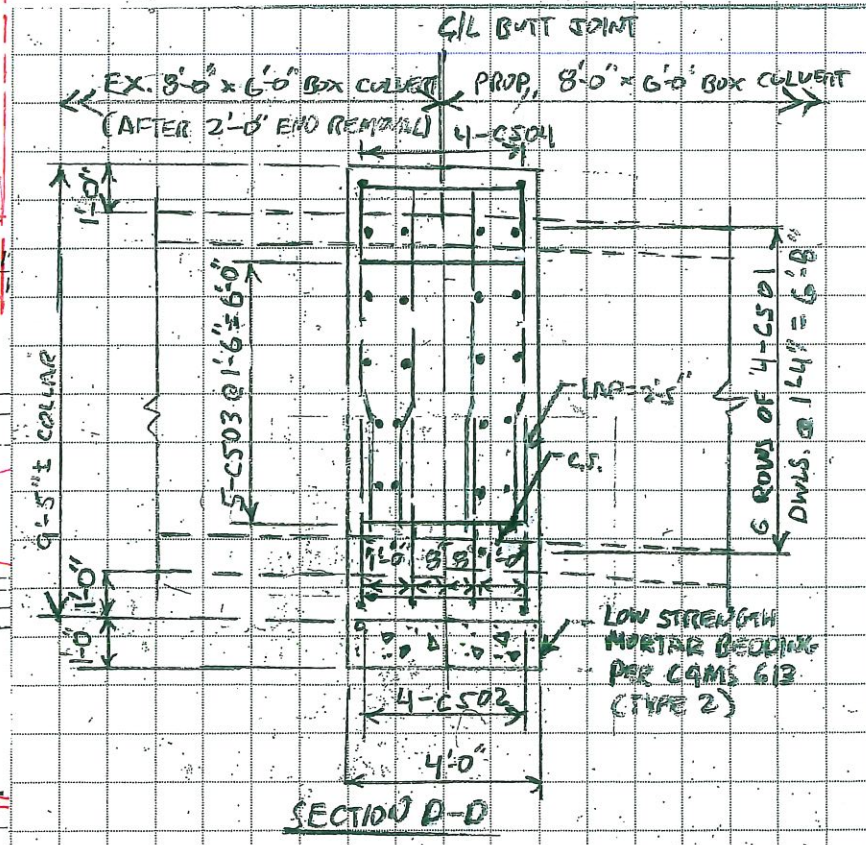 C/L BUTT JOINT
EX. 8'-0" x 6'-0" BOX CULVERT
(AFTER 2'-0" END REMOVAL)
PROP. 8'-0" x 6'-0" BOX CULVERT
4-C504
1'-0"
9'-5"± COLLAR
5-C503 @ 1'-6" = 6'-0"
6 ROWS OF 4-C501
DWLS. @ 1'-4" = 6'-8"
LAP=2'-5"
C.J.
1'-0" 8" 8" 1'-0"
1'-0"
1'-0"
LOW STRENGTH
MORTAR BEDDING
PER C&MS 613
(TYPE 2)
4-C502
4'-0"
SECTION D-D